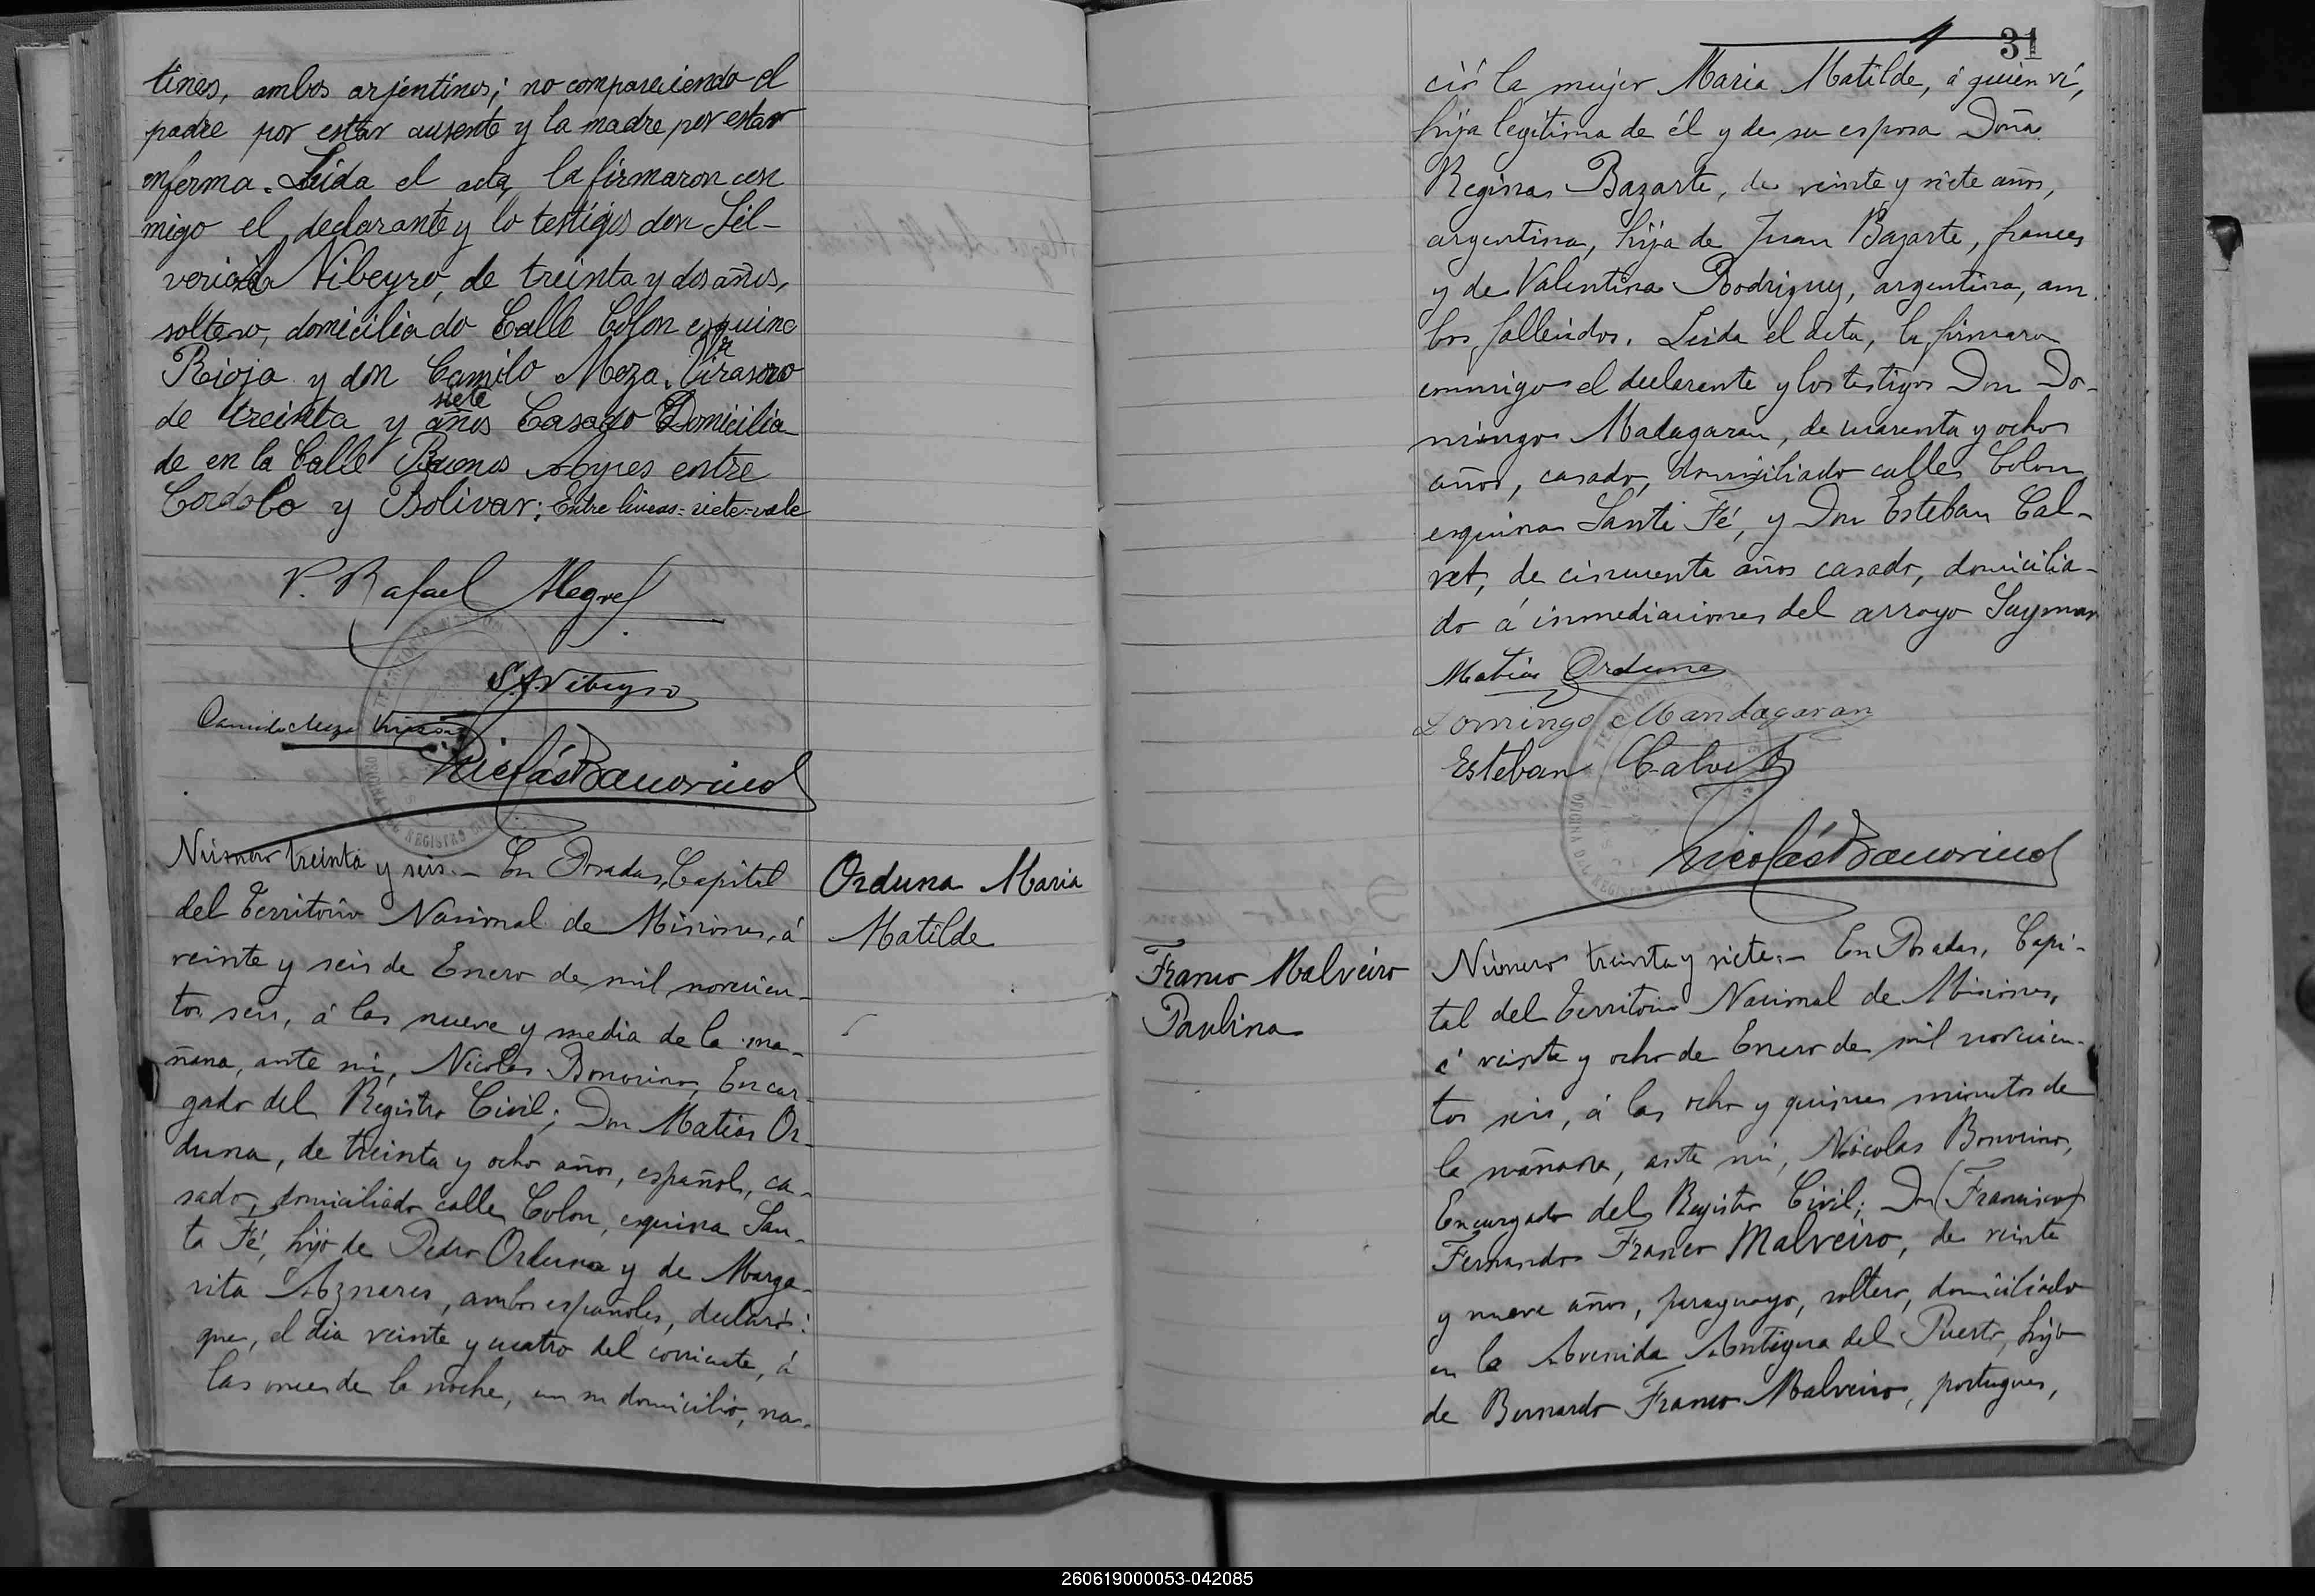 tines, ambos arjentinos; no compareciendo el
padre por estar ausente y la madre por estar
enferma. Leida el acta, la firmaron con
migo el declarante y lo testigos don Sil-
verio Nibeyro, de treinta y dos años,
soltero, domiciliado Calle Colon esquina
Rioja y don Camilo Meza Virasoro
siete
de treinta y años Casado Domicilia
de en la Calle Buenos Ayres entre
Cordoba y Bolivar; Entre lineas: siete = vale
V. Rafael Alegre
S. A. Nibeyro
Camilo Meza Virasoro
Nicolás Bonorino
Número treinta y seis.- En Posadas, Capital
del Territorio Nacional de Misiones, á
veinte y seis de Enero de mil novecien-
tos seis, á las nueve y media de la ma-
ñana, ante mi, Nicolas Bonorino, Encar-
gado del Registro Civil; Don Matias Or-
duna, de treinta y ocho años, español, ca-
sado, domiciliado calle Colon, esquina San-
ta Fé, hijo de Pedro Orduna y de Marga-
rita Aznares, ambos españoles, declaró:
que, el dia veinte y cuatro del corriente, á
las once de la noche, en su domicilio, na-
Orduna Maria
Matilde
31
ció la mujer Maria Matilde, á quien ví,
hija legítima de él y de su esposa Doña
Regina Bazarte, de veinte y siete años,
argentina, hija de Juan Bazarte, frances
y de Valentina Rodriguez, argentina, am
bos fallecidos. Leida el acta, la firmaron
conmigo el declarante y los testigos Don Do-
mingo Madagaran, de cuarenta y ocho
años, casado, domiciliado calles Colon
esquina Santa Fé, y Don Esteban Cal-
vet, de cincuenta años casado, domicilia-
do á inmediaciones del arroyo Zayman
Matias Orduna
Domingo Mandagaran
Esteban Calvet
Nicolás Bonorino
Franco Malveiro
Paulina
Número treinta y siete.- En Posadas, Capi-
tal del Territorio Nacional de Misiones,
á veinte y ocho de Enero de mil novecien-
tos seis, á las ocho y quince minutos de
la mañana, ante mi, Nicolas Bonorino,
Encargado del Registro Civil; Don (Francisco)
Fernando Franco Malveiro, de veinte
y nueve años, paraguayo, soltero, domiciliado
en la Avenida Antigua del Puerto, hijo
de Bernardo Franco Malveiro, portugues,
260619000053-042085